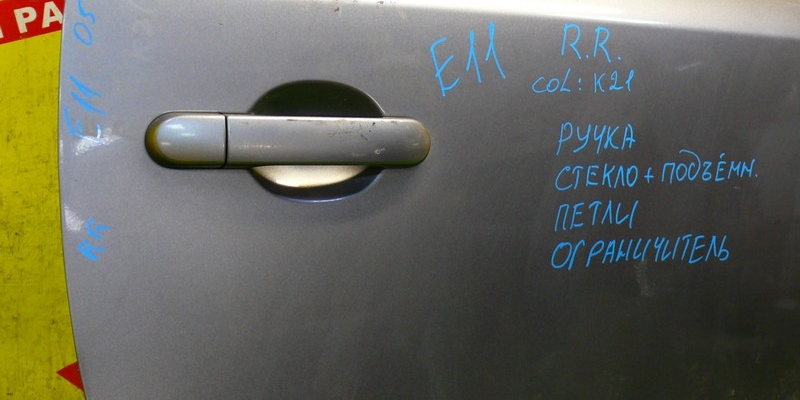 E11 05
RR
E11
R.R.
COL: K21
РУЧКА
СТЕКЛО + ПОДЪЁМН.
ПЕТЛИ
ОГРАНИЧИТЕЛЬ